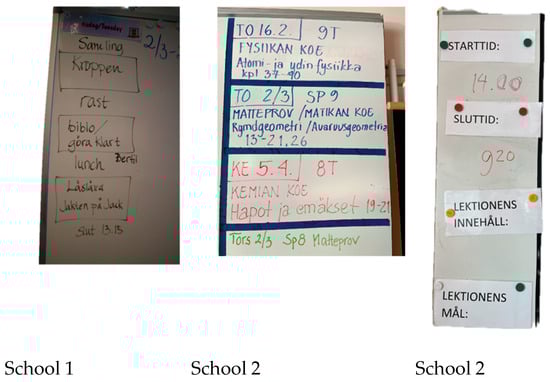 isdag/Tuesday
Samling
2/3-
Kroppen
rast
biblo/
göra klart
lunch Bertil
Låsläxa
Jakten på Jack
Slut 13.15
TO 16.2. 9T
FYSIIKAN KOE
Atomi- ja ydinfysiikka
kpl 37-90
TO 2/3 SP9
MATTEPROV / MATIKAN KOE
Rymdgeometri / Avaruusgeometria
13-21, 26
KE 5.4. 8T
KEMIAN KOE
Hapot ja emäkset 19-21
Tors 2/3 Sp8 Matteprov
STARTTID:
14.00
SLUTTID:
920
LEKTIONENS
INNEHÅLL:
LEKTIONENS
MÅL:
School 1
School 2
School 2